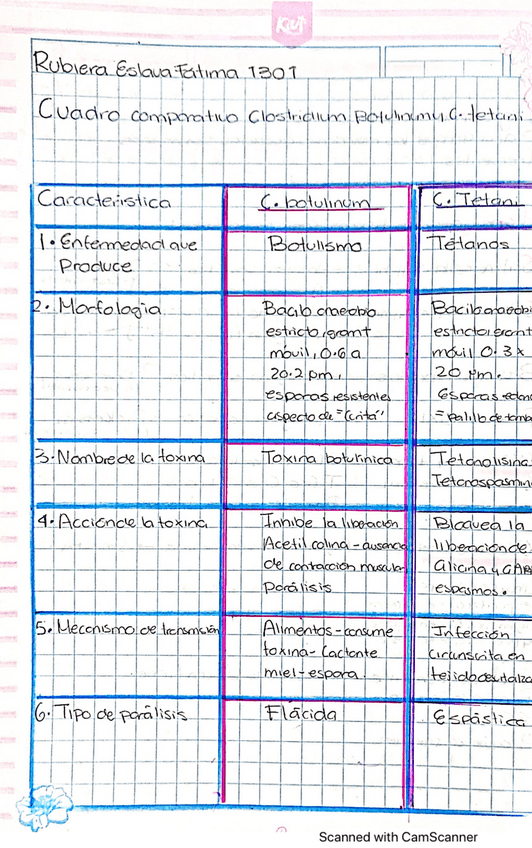 Kiut
Rubiera Eslava Fatima 1301
Cuadro comparativo Clostridium Botulinum y C. tetani
Caracteristica
C. botulinum
C. Tetani
1. Enfermedad que
Produce
Botulismo
Tétanos
2. Morfologia
Bacilo anaerobio
estricto, gram+
móvil, 0.6 a
20.2 µm,
esporas resistentes
aspecto de "cerita"
Bacilo anaerobi
estricto, gram+
móvil 0.3 x
20 µm.
Esporas redon
= palillo de tamb
3. Nombre de la toxina
Toxina botulinica
Tetanolisina
Tetanospasmin
4. Acción de la toxina
Inhibe la liberación
Acetil colina - ausencia
de contracción muscular
Parálisis
Bloquea la
liberación de
Glicina y GABA
espasmos.
5. Mecanismo de transmisión
Alimentos - consume
toxina - Lactante
miel - espora
Infección
circunscrita en
tejido desvitaliza
6. Tipo de parálisis
Flácida
Espástica
Scanned with CamScanner